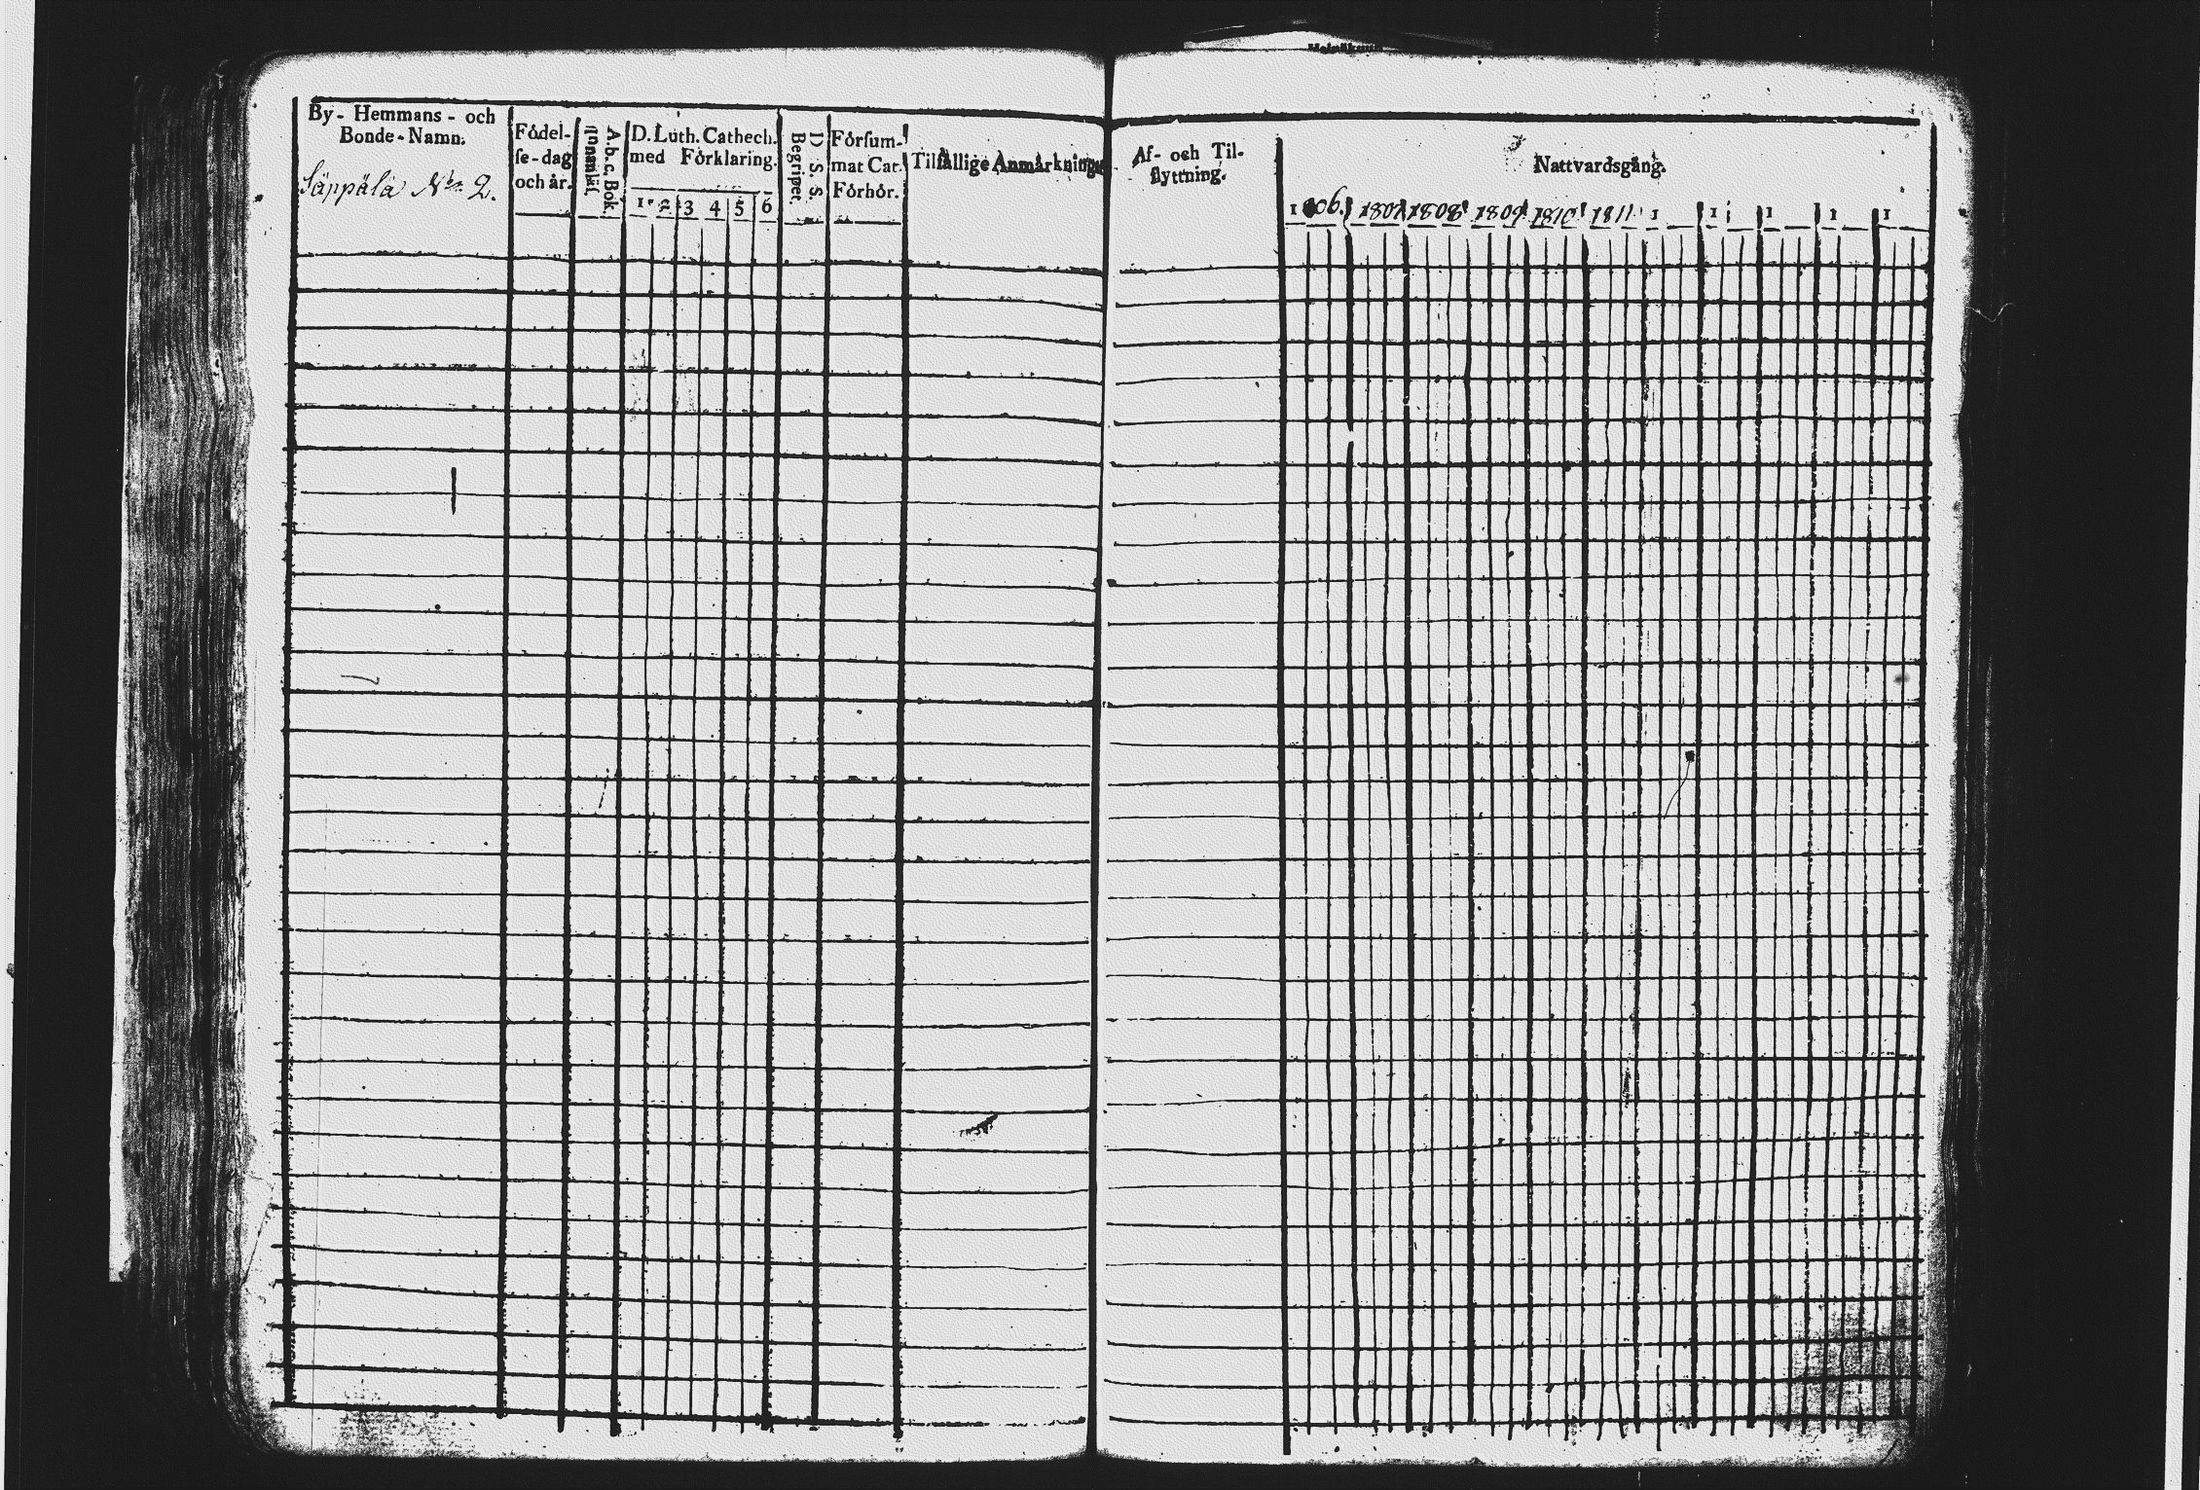 By- Hemmans- och
Bonde-Namn.
Säppälä No 2.
Födel-
se-dag
och år.
A.b.c. Bok
innanläs.
D. Luth. Cathech.
med Förklaring.
1 2 3 4 5 6
D. S. S.
Begripet.
Försum-
mat Cat.
Förhör.
Tilfällige Anmärkningar
Af- och Til-
flyttning.
Nattvardsgång.
1806. 1807 1808 1809 1810 1811 1 1 1 1 1